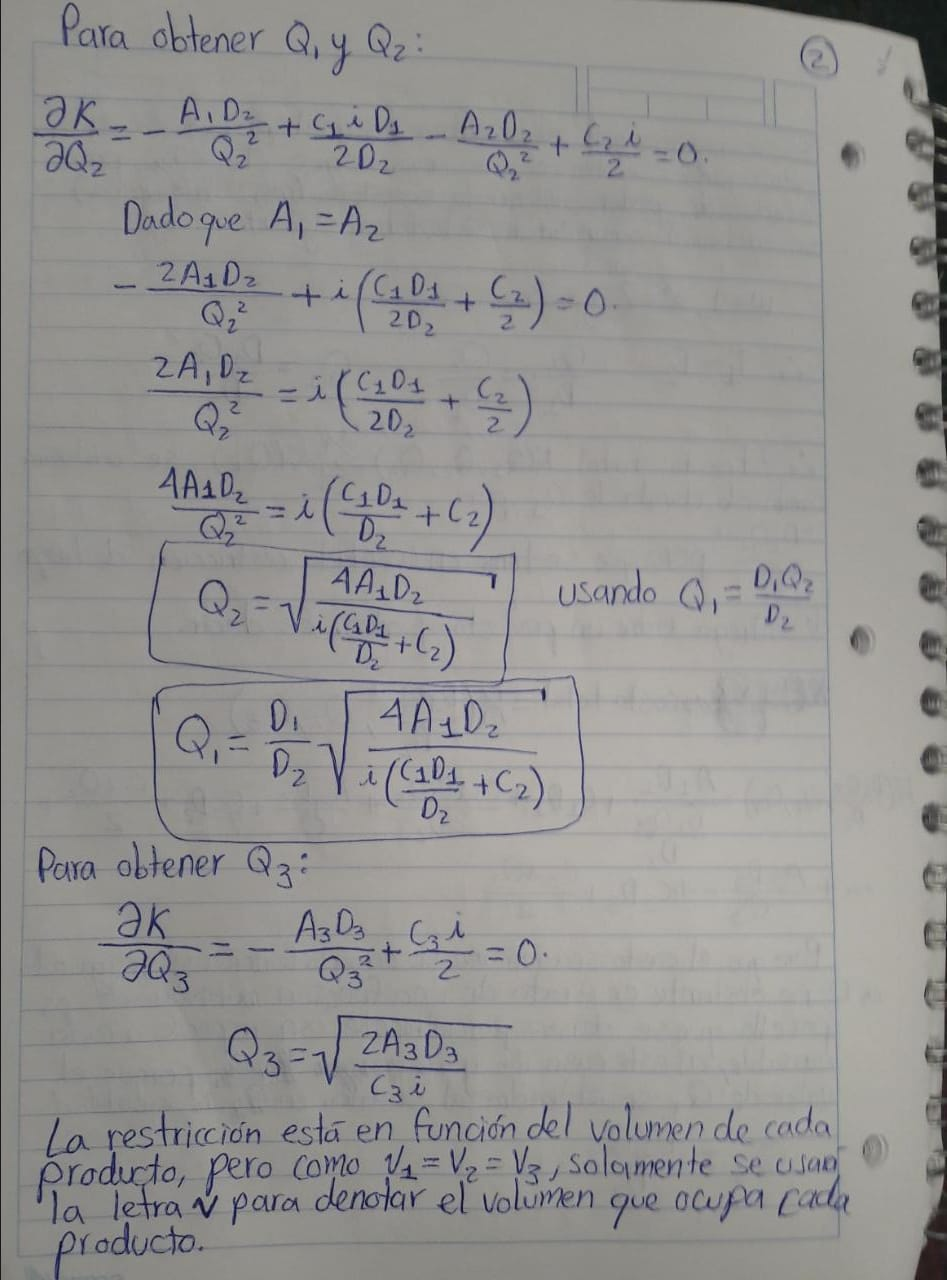 Para obtener Q₁ y Q₂:
②
∂K/∂Q₂ = - A₁D₂/Q₂² + C₁iD₁/2D₂ - A₂D₂/Q₂² + C₂i/2 = 0.
Dado que A₁ = A₂
- 2A₁D₂/Q₂² + i(C₁D₁/2D₂ + C₂/2) = 0.
2A₁D₂/Q₂² = i(C₁D₁/2D₂ + C₂/2)
4A₁D₂/Q₂² = i(C₁D₁/D₂ + C₂)
Q₂ = √(4A₁D₂/(i(C₁D₁/D₂ + C₂))) usando Q₁ = D₁Q₂/D₂
Q₁ = D₁/D₂ √(4A₁D₂/(i(C₁D₁/D₂ + C₂)))
Para obtener Q₃:
∂K/∂Q₃ = - A₃D₃/Q₃² + C₃i/2 = 0.
Q₃ = √(2A₃D₃/C₃i)
La restricción está en función del volumen de cada
producto, pero como V₁ = V₂ = V₃, solamente se usan
la letra V para denotar el volumen que ocupa cada
producto.